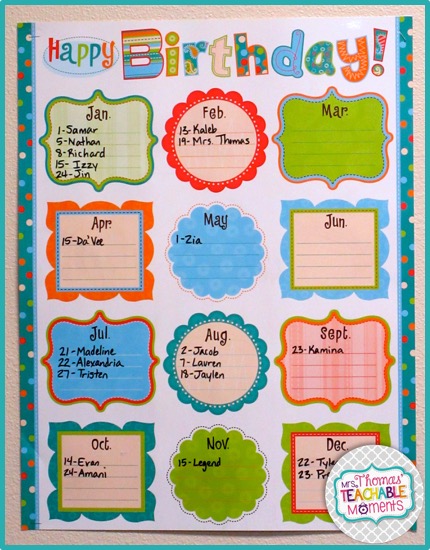 Happy Birthday!
Jan.
1-Samar
5-Nathan
8-Richard
15-Izzy
24-Jin
Feb.
13-Kaleb
19-Mrs. Thomas
Mar.
Apr.
15-Da'Vee
May
1-Zia
Jun.
Jul.
21-Madeline
22-Alexandria
27-Tristen
Aug.
2-Jacob
7-Lauren
18-Jaylen
Sept.
23-Kamina
Oct.
14-Evan
24-Amani
Nov.
15-Legend
Dec.
22-
23-
Mrs. Thomas'
TEACHABLE
MOMENTS